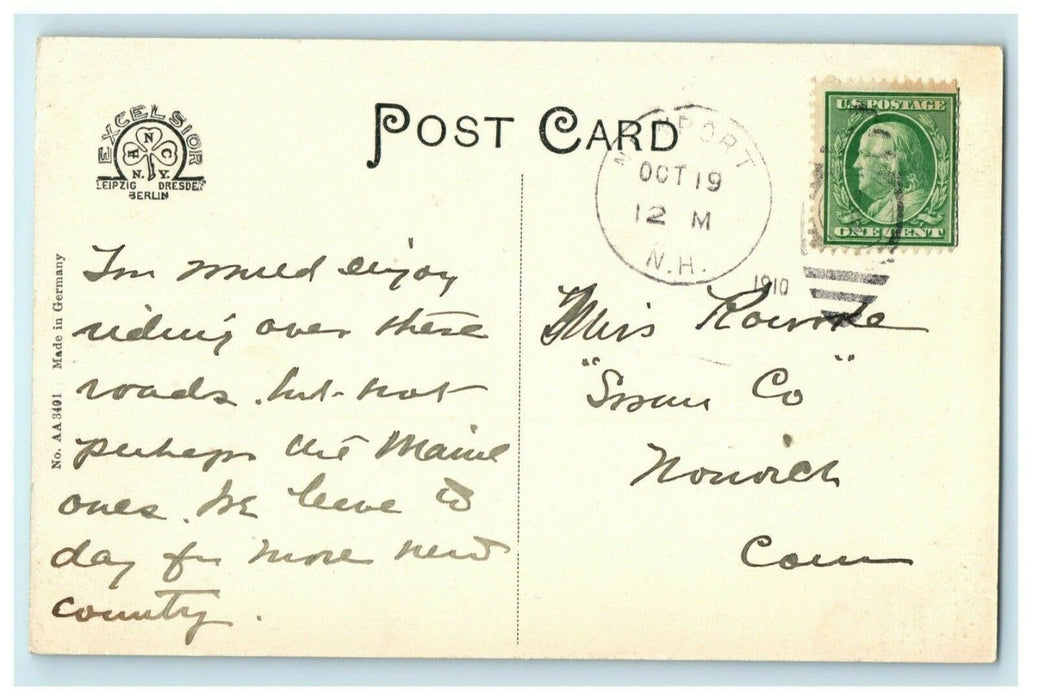 EXCELSIOR
H N C
N.Y.
LEIPZIG DRESDEN
BERLIN
POST CARD
NEWPORT
OCT 19
12 M
N.H.
1910
U.S. POSTAGE
ONE CENT
No. AA 3401 Made in Germany
would enjoy
riding over these
roads, but not
perhaps the Maine
ones. We leave to
day for more new
country.
Miss Rourke
"Swan Co"
Norwich
Conn